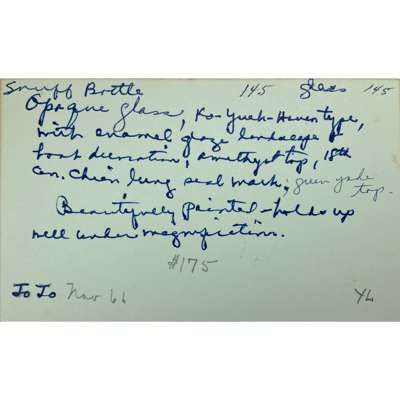 Snuff Bottle 145 glass 145
Opaque glass, Ko-Yueh-Hsuen type,
with enamel glaze landscape &
boat decoration, amethyst top, 18th
cen. Chien lung seal mark; green jade
top.
Beautifully painted - holds up
well under magnification.
#175
JoJo Nov 66 YL